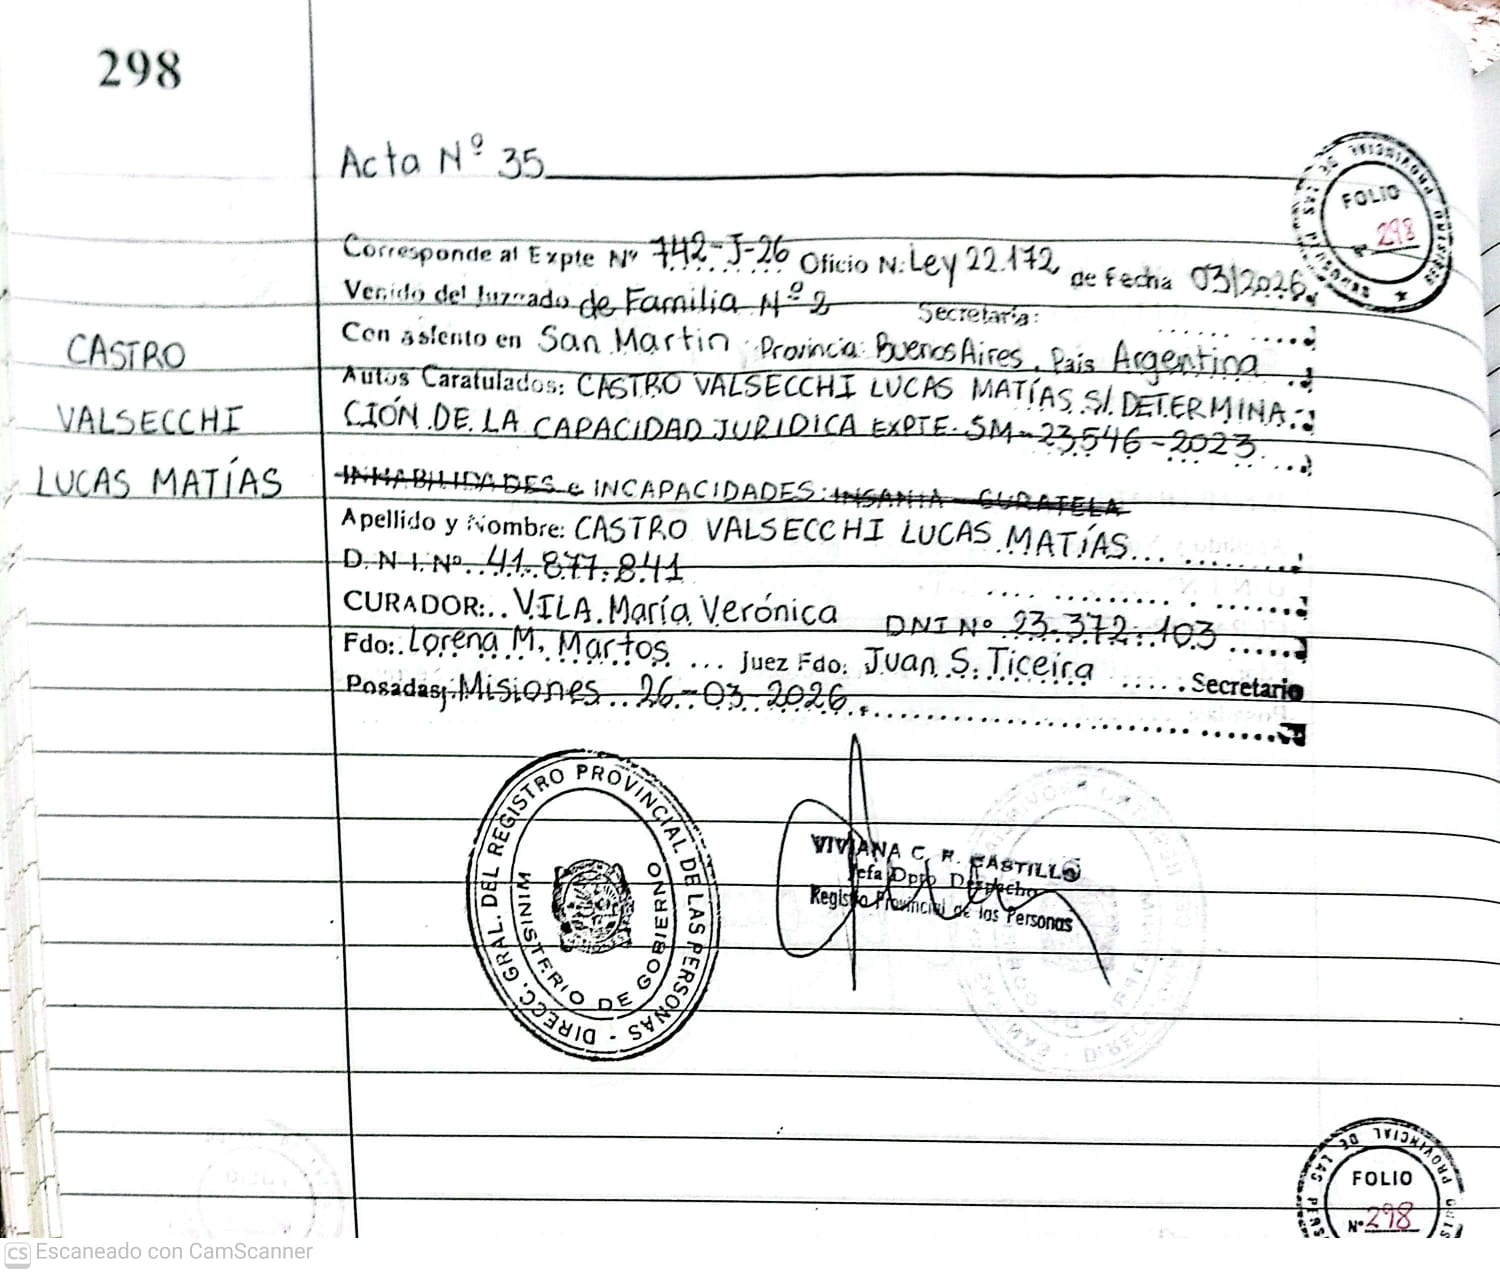 298
Acta Nº 35
FOLIO
Nº 298
Corresponde al Expte Nº 742-J-26 Oficio N: Ley 22.172 de Fecha 03/2026
Venido del Juzgado de Familia Nº 2 Secretaría:
CASTRO
VALSECCHI
LUCAS MATÍAS
Con asiento en San Martin Provincia: Buenos Aires, País Argentina
Autos Caratulados: CASTRO VALSECCHI LUCAS MATÍAS S/. DETERMINA-
CIÓN DE LA CAPACIDAD JURIDICA EXPTE. SM-23546-2023
INHABILIDADES e INCAPACIDADES: INSANIA - CURATELA
Apellido y Nombre: CASTRO VALSECCHI LUCAS MATÍAS
D.N.I.Nº 41.877.841
CURADOR: VILA María Verónica DNI Nº 23.372.103
Fdo: Lorena M. Martos Juez Fdo: Juan S. Ticeira Secretario
Posadas, Misiones 26-03-2026
DIRECC. GRAL. DEL REGISTRO PROVINCIAL DE LAS PERSONAS
MINISTERIO DE GOBIERNO
VIVIANA C. R. CASTILLO
Jefa Dpto Despacho
Registro Provincial de las Personas
PROVINCIAL DE LAS
FOLIO
Nº 298
CS Escaneado con CamScanner